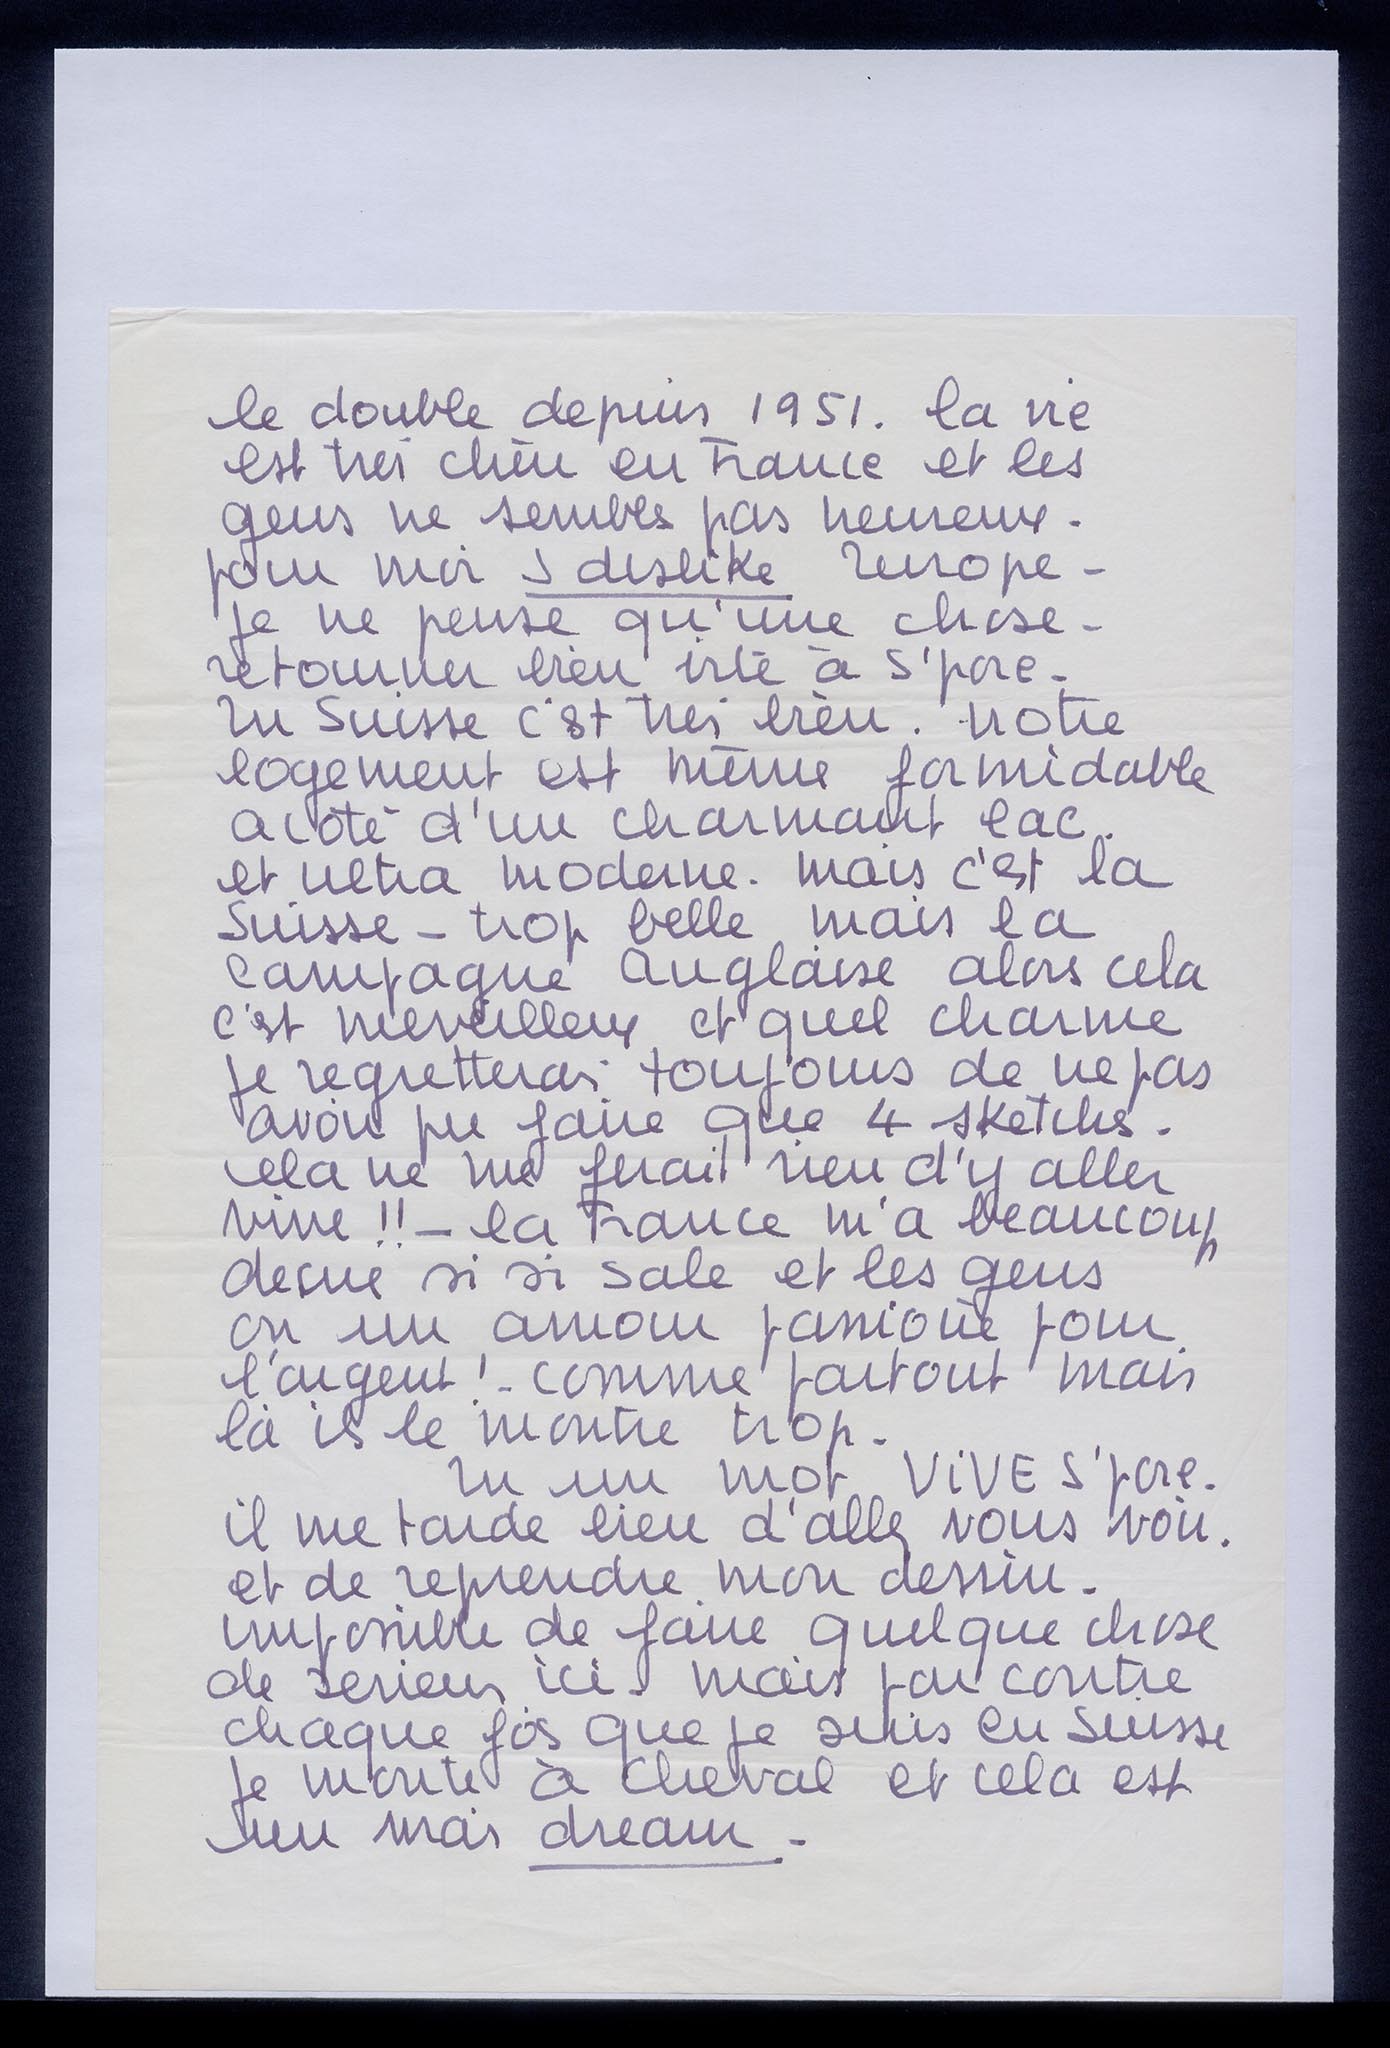 le double depuis 1951. la vie
est tres chèr en France et les
gens ne sembles pas heureux.
pour moi I dislike Europe -
je ne pense qu'une chose -
retourner bien vite à S'pore -
En Suisse c'est tres bien. notre
logement est même formidable
a coté d'un charmant lac.
et ultra moderne. mais c'est la
Suisse - trop belle mais la
Campagne Anglaise alors cela
c'est merveilleux et quel charme
je regretterai toujours de ne pas
avoir pu faire que 4 sketchs.
cela ne me ferait rien d'y aller
vivre !! - la France m'a beaucoup
decue si si sale et les gens
on un amour passioné pour
l'argent ! - comme partout mais
là ils le montre trop.
En un mot VIVE S'pore.
il me tarde bien d'aller vous voir.
et de reprendre mon dessin.
impossible de faire quelque chose
de serieux ici. mais par contre
chaque fois que je suis en Suisse
je monte à cheval et cela est
un vrai dream -